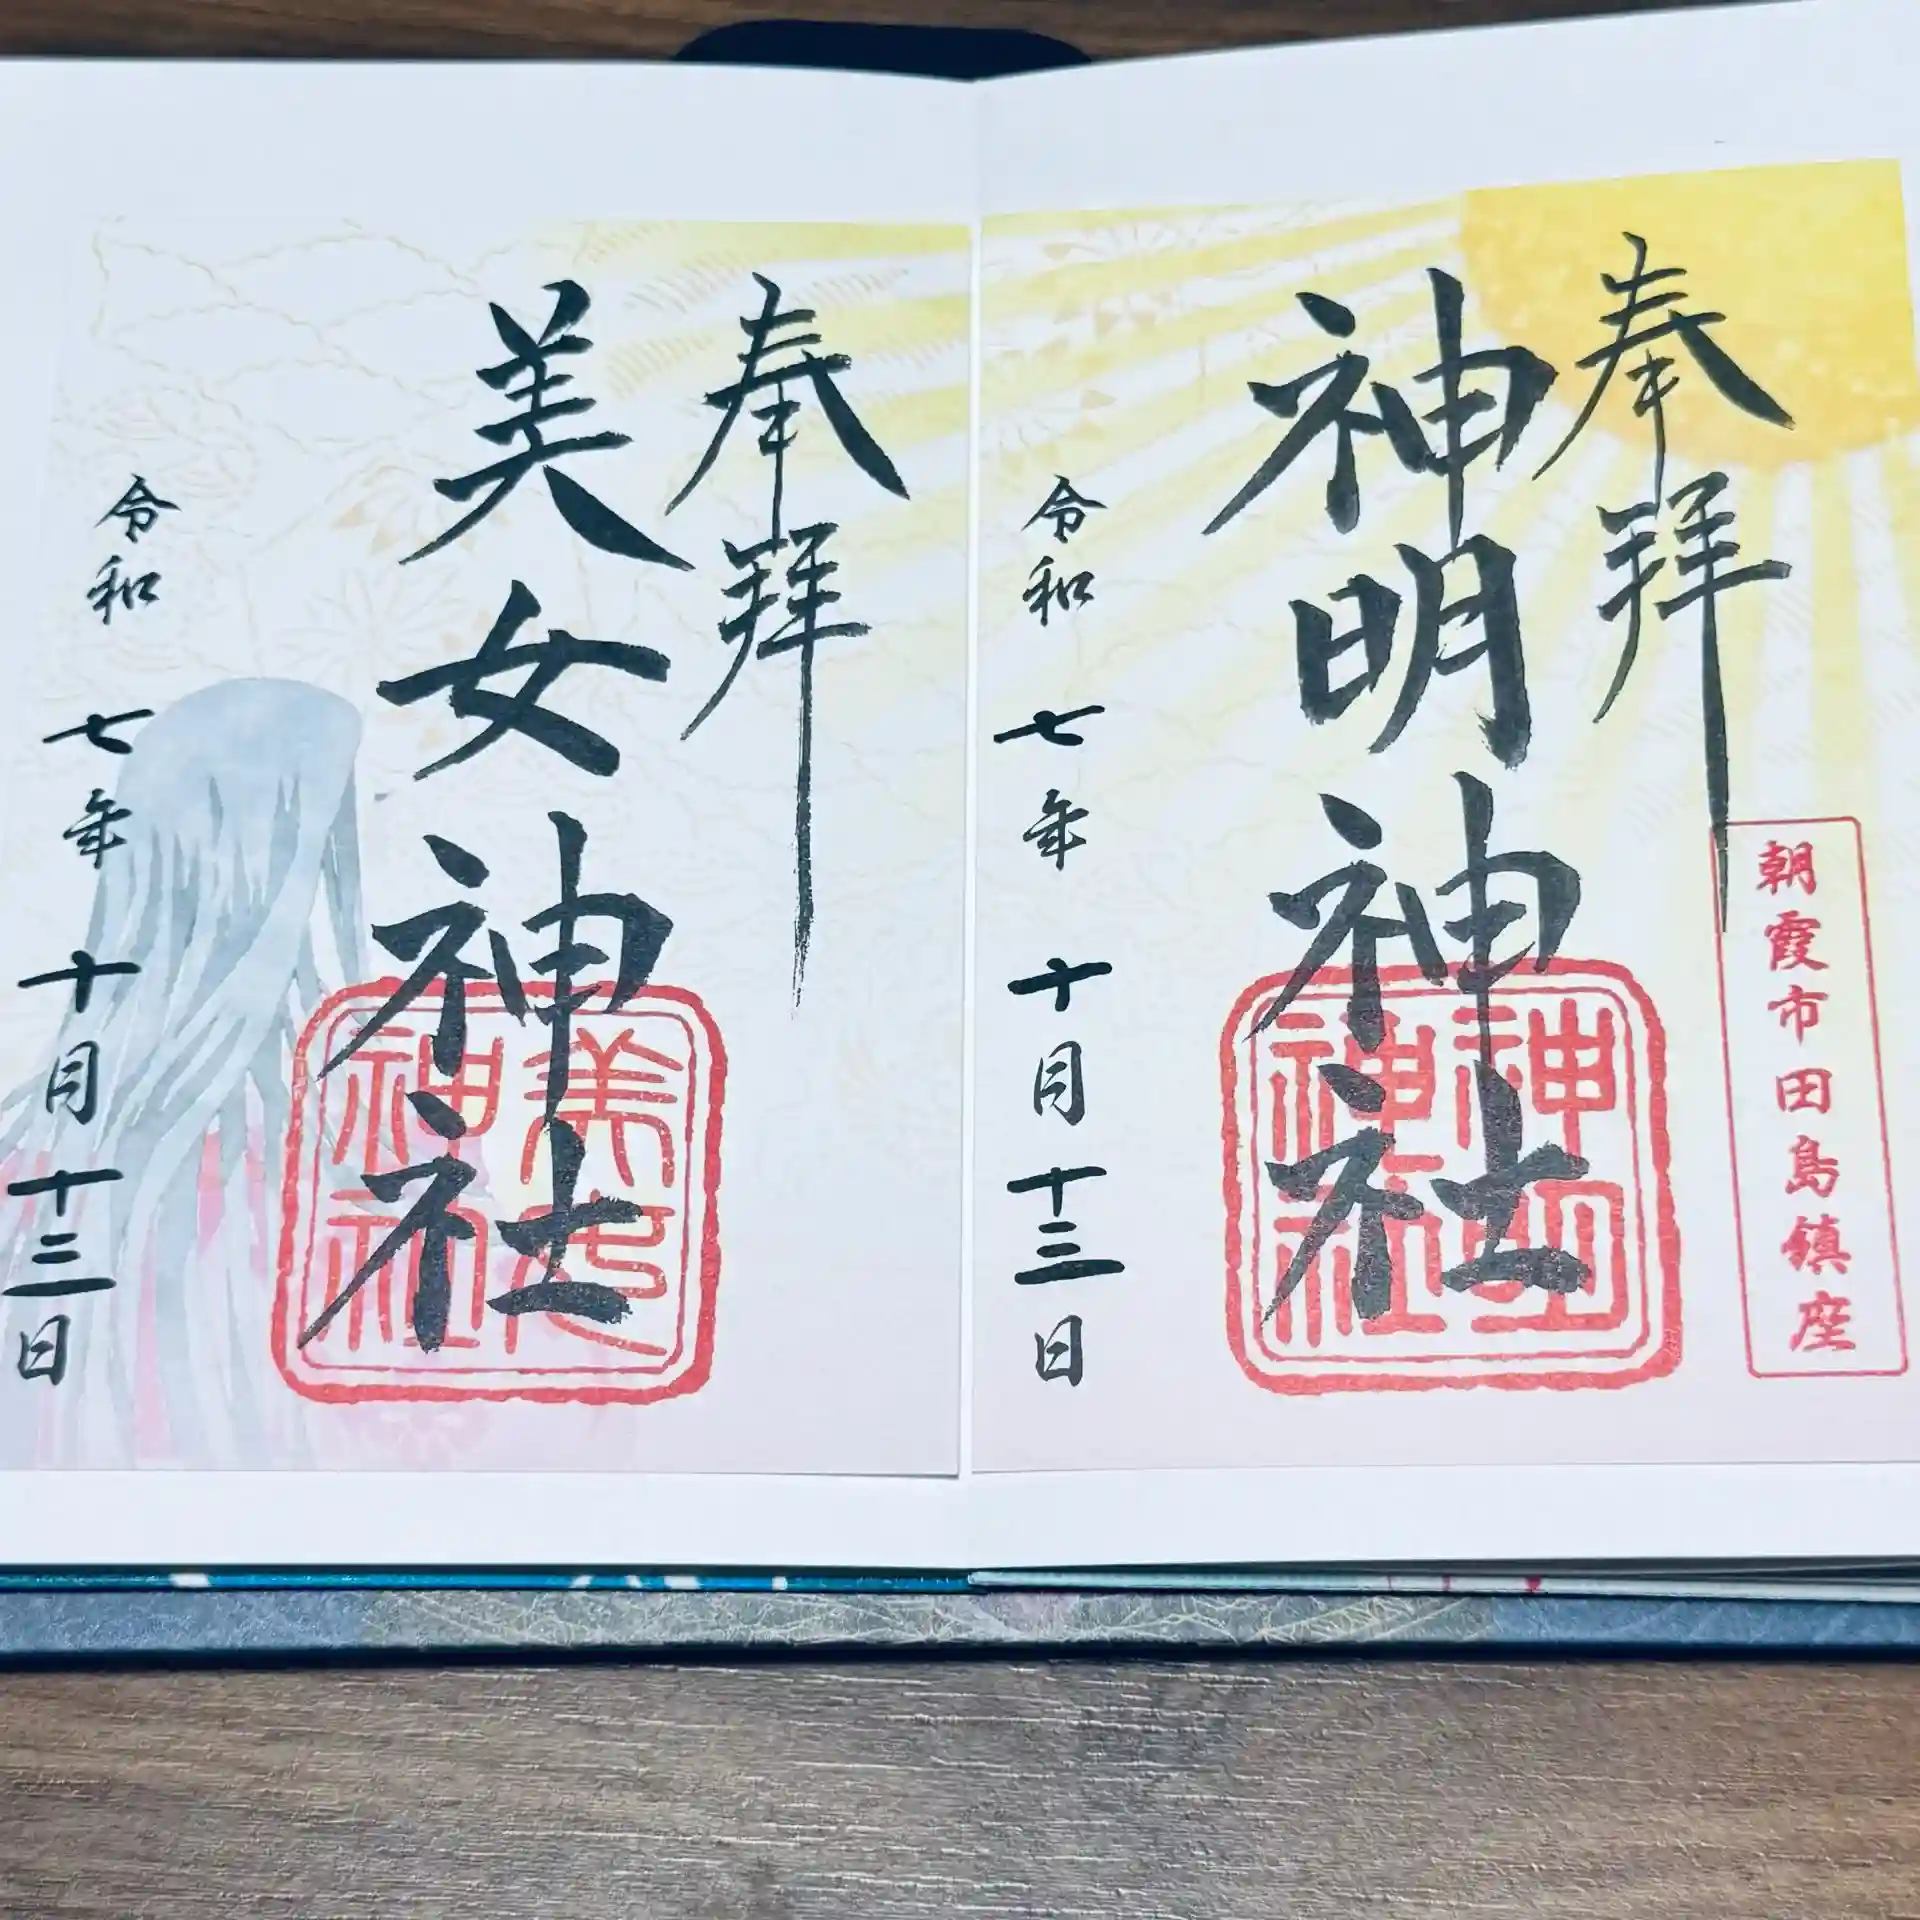 奉拜
朝霞市田島鎮座
神明神社
神明神社
令和七年十月十三日
奉拜
美女神社
美女神社
令和七年十月十三日